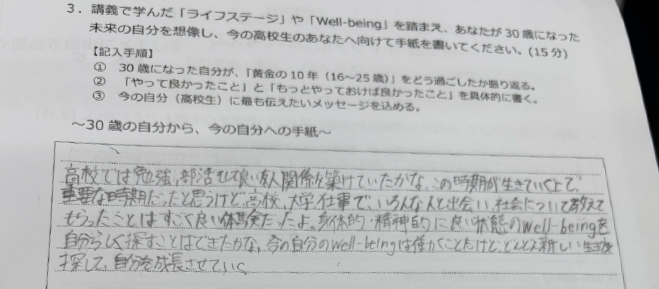 3．講義で学んだ「ライフステージ」や「Well-being」を踏まえ、あなたが30歳になった
未来の自分を想像し、今の高校生のあなたへ向けて手紙を書いてください。(15分)
【記入手順】
① 30歳になった自分が、「黄金の10年（16～25歳）」をどう過ごしたか振り返る。
② 「やって良かったこと」と「もっとやっておけば良かったこと」を具体的に書く。
③ 今の自分（高校生）に最も伝えたいメッセージを込める。
～30歳の自分から、今の自分への手紙～
高校では勉強、部活そして良い友人関係が築けていたかな。この時期が生きていく上で、
重要な時期だったと思うけど、高校、大学、仕事で、いろんな人と出会い、社会について教えて
もらったことはすごく良い体験だったよ。身体的・精神的に良い状態のWell-beingを
自分らしく探すことはできたかな。今の自分のWell-beingは働くことだけど、どんどん新しい生き方を
探して、自分を成長させていく。